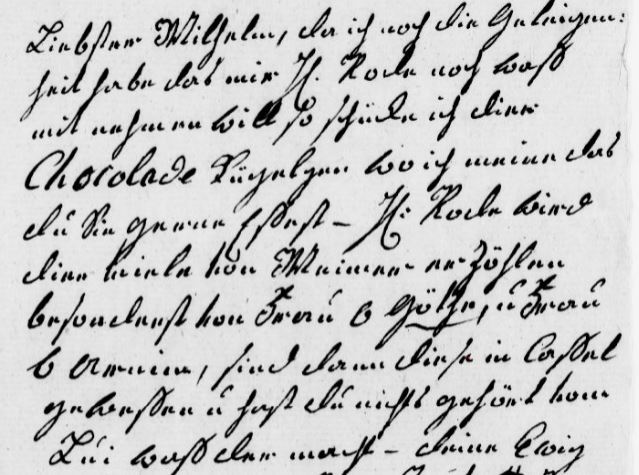 Liebster Wilhelm, da ich noch die Geleigen:
heit habe das mir H. Rode noch waß
mit nehmen will so schücke ich dier
Chocolade Kügelgen wo ich meine das
du Sie gerne Essest – H: Rode wird
dier viele von Weimer erzöhlen
besonderst von Frau v Göthe, u Frau
v Arenim, sind dann diese in Cassel
gewessen u hast du nichts gehört vom
Lui waß der macht – deine Ewig